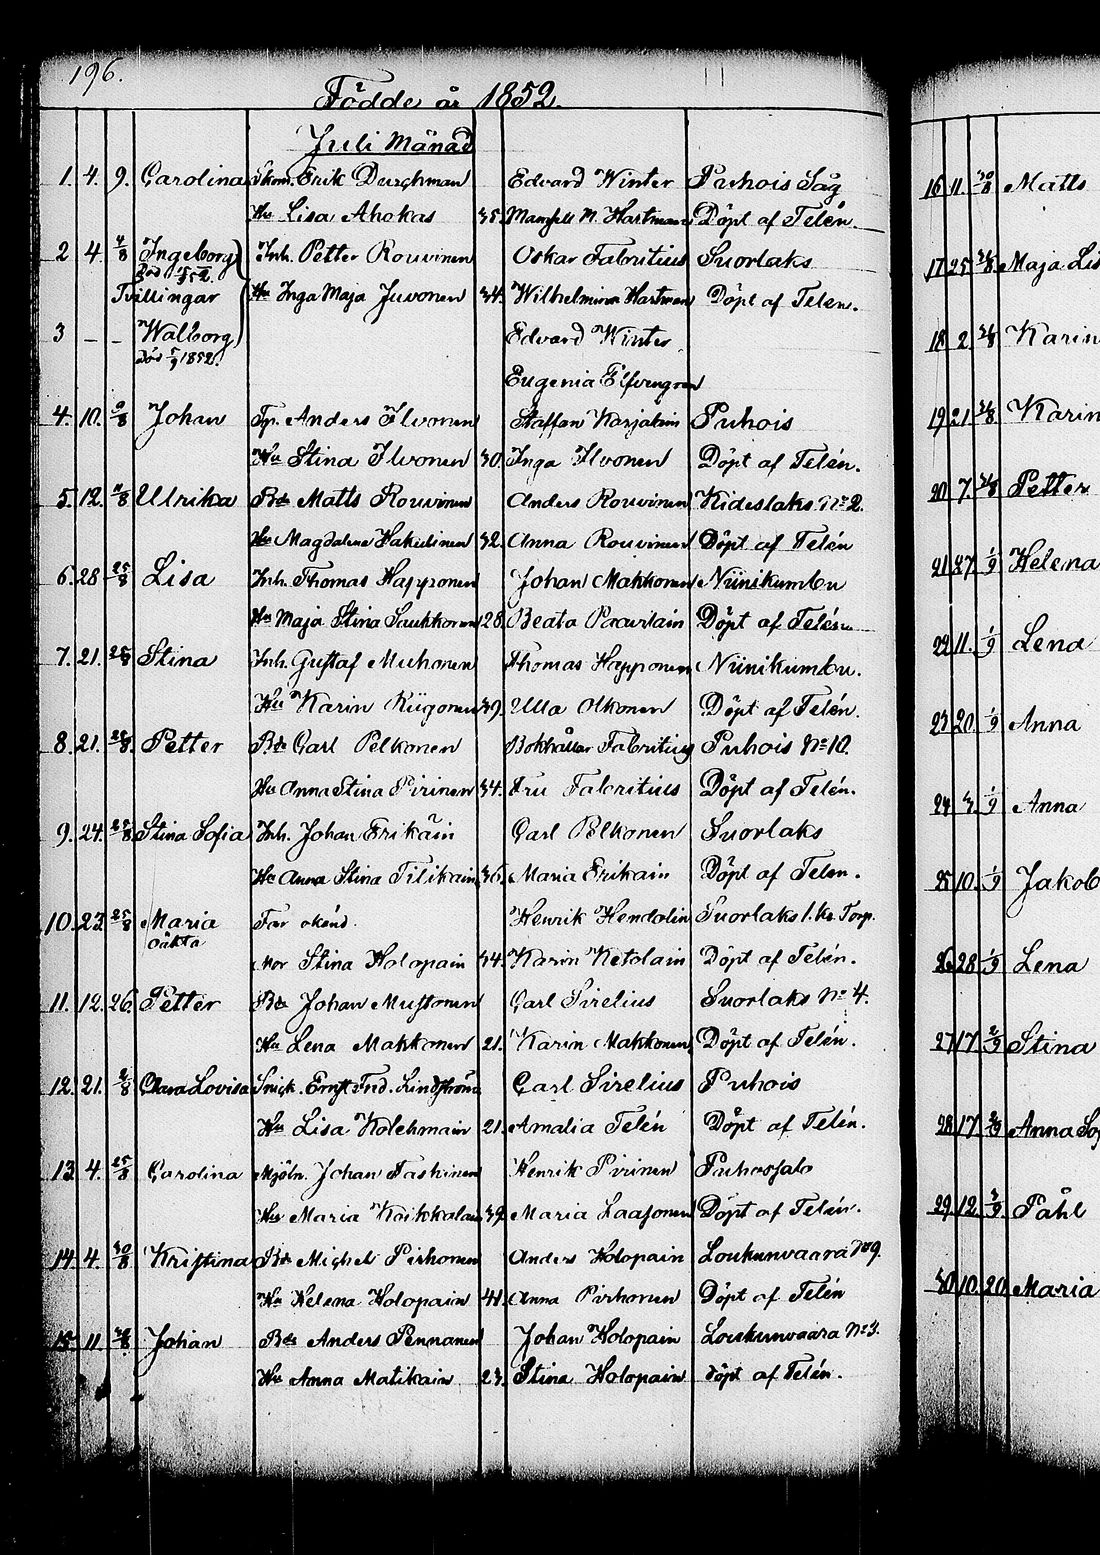 196.
Födde år 1852.
Juli Månad
1. 4. 9. Carolina Skom. Erik Durchman Edvard Winter Puhois Såg
Hu Lisa Ahokas 35. Mamsell M. Hartman Döpt af Telén.
2 4 4/8 Ingeborg Inh. Petter Rouvinen Oskar Fabritius Suorlaks
Död 1852.
Tvillingar Hu Inga Maja Juvonen 34. Wilhelmina Hartman Döpt af Telén.
3 – – Walborg Edvard Winter
Död 5/9 1852. Eugenia Elfvengren
4. 10. 9/8 Johan Tp. Anders Ilvonen Staffan Karjalain Puhois
Hu Stina Ilvonen 30. Inga Ilvonen Döpt af Telén.
5. 12. 11/8 Ulrika Bde Matts Rouvinen Anders Rouvinen Kideslaks No 2.
Hu Magdalena Hakulinen 32. Anna Rouvinen Döpt af Telén
6. 28 25/8 Lisa Inh. Thomas Happonen Johan Makkonen Niinikumbu
Hu Maja Stina Saukkonen 28. Beata Paavilain Döpt af Telén
7. 21. 25/8 Stina Inh. Gustaf Muhonen Thomas Happonen Niinikumbu.
Hu Karin Kiigonen 39. Ulla Olkonen Döpt af Telén.
8. 21. 25/8 Petter Bde Carl Pelkonen Bokhållar Fabritius Puhois No 10.
Hu Anna Stina Pirinen 34. Fru Fabritius Döpt af Telén.
9. 24. 25/8 Stina Sofia Inh. Johan Erikäin Carl Pelkonen Suorlaks
Hu Anna Stina Tilikain 36. Maria Erikain Döpt af Telén.
10. 23. 25/8 Maria Far okänd. Henrik Hendolin Suorlaks 1. Kr. Torp.
oäkta
Mor Stina Holopain 34. Karin Ketolain Döpt af Telén.
11. 12. 26. Petter Bde Johan Mustonen Carl Sirelius Suorlaks No 4.
Hu Lena Makkonen 21. Karin Makkonen Döpt af Telén.
12. 21. 2/8 Clara Lovisa Snick. Ernst Fred. Lindström Carl Sirelius Puhois
Hu Lisa Kolehmain 21. Amalia Telén Döpt af Telén.
13. 4. 25/8 Carolina Mjöln. Johan Taskinen Henrik Pirinen Puhossalo
Hu Maria Koikkalain 39. Maria Laasonen Döpt af Telén.
14. 4 30/8 Kristina Bde Michel Pirhonen Anders Holopain Loukunvaara No 9.
Hu Helena Holopain 41. Anna Pirhonen Döpt af Telén
15. 11 Johan Bde Anders Pennanen Johan Holopain Loukunvaara No 3.
Hu Anna Matikain 23. Stina Holopain Döpt af Telén.
16 11. 30/8 Matts
17 25 Maja Lis
18 2. Karin
19 21. Karin
20 7. Petter
21 27. 1/9 Helena
22 11. 1/9 Lena
23 20. 1/9 Anna
24 3. 1/9 Anna
25 10. 1/9 Jakob
26 28 1/9 Lena
27 17. 2/9 Stina
28 17 Anna So
29 12. 3/9 Påhl
30 10. 20. Maria